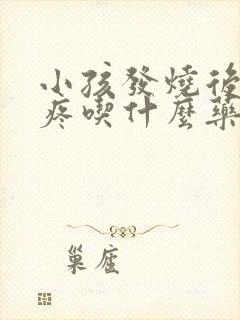 小孩發燒後
疼喫什麼藥
巢雇